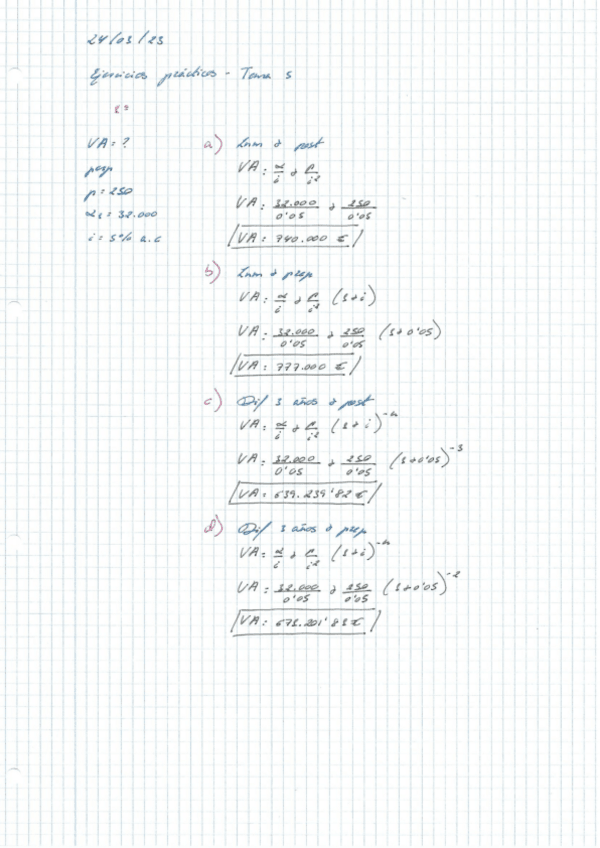 24/03/23
Ejercicios prácticos - Tema 5
1º
VA = ?
perp
p = 250
α1 = 32.000
i = 5% a.c
a) Inm + post
VA = α/i + P/i²
VA = 32.000/0'05 + 250/0'05
VA = 740.000 €
b) Inm + prep
VA = α/i + P/i² (1+i)
VA = 32.000/0'05 + 250/0'05 (1+0'05)
VA = 777.000 €
c) Dif 3 años + post
VA = α/i + P/i² (1+i)⁻ⁿ
VA = 32.000/0'05 + 250/0'05 (1+0'05)⁻³
VA = 639.239'82 €
d) Dif 3 años + prep
VA = α/i + P/i² (1+i)⁻ⁿ
VA = 32.000/0'05 + 250/0'05 (1+0'05)⁻²
VA = 671.201'81 €